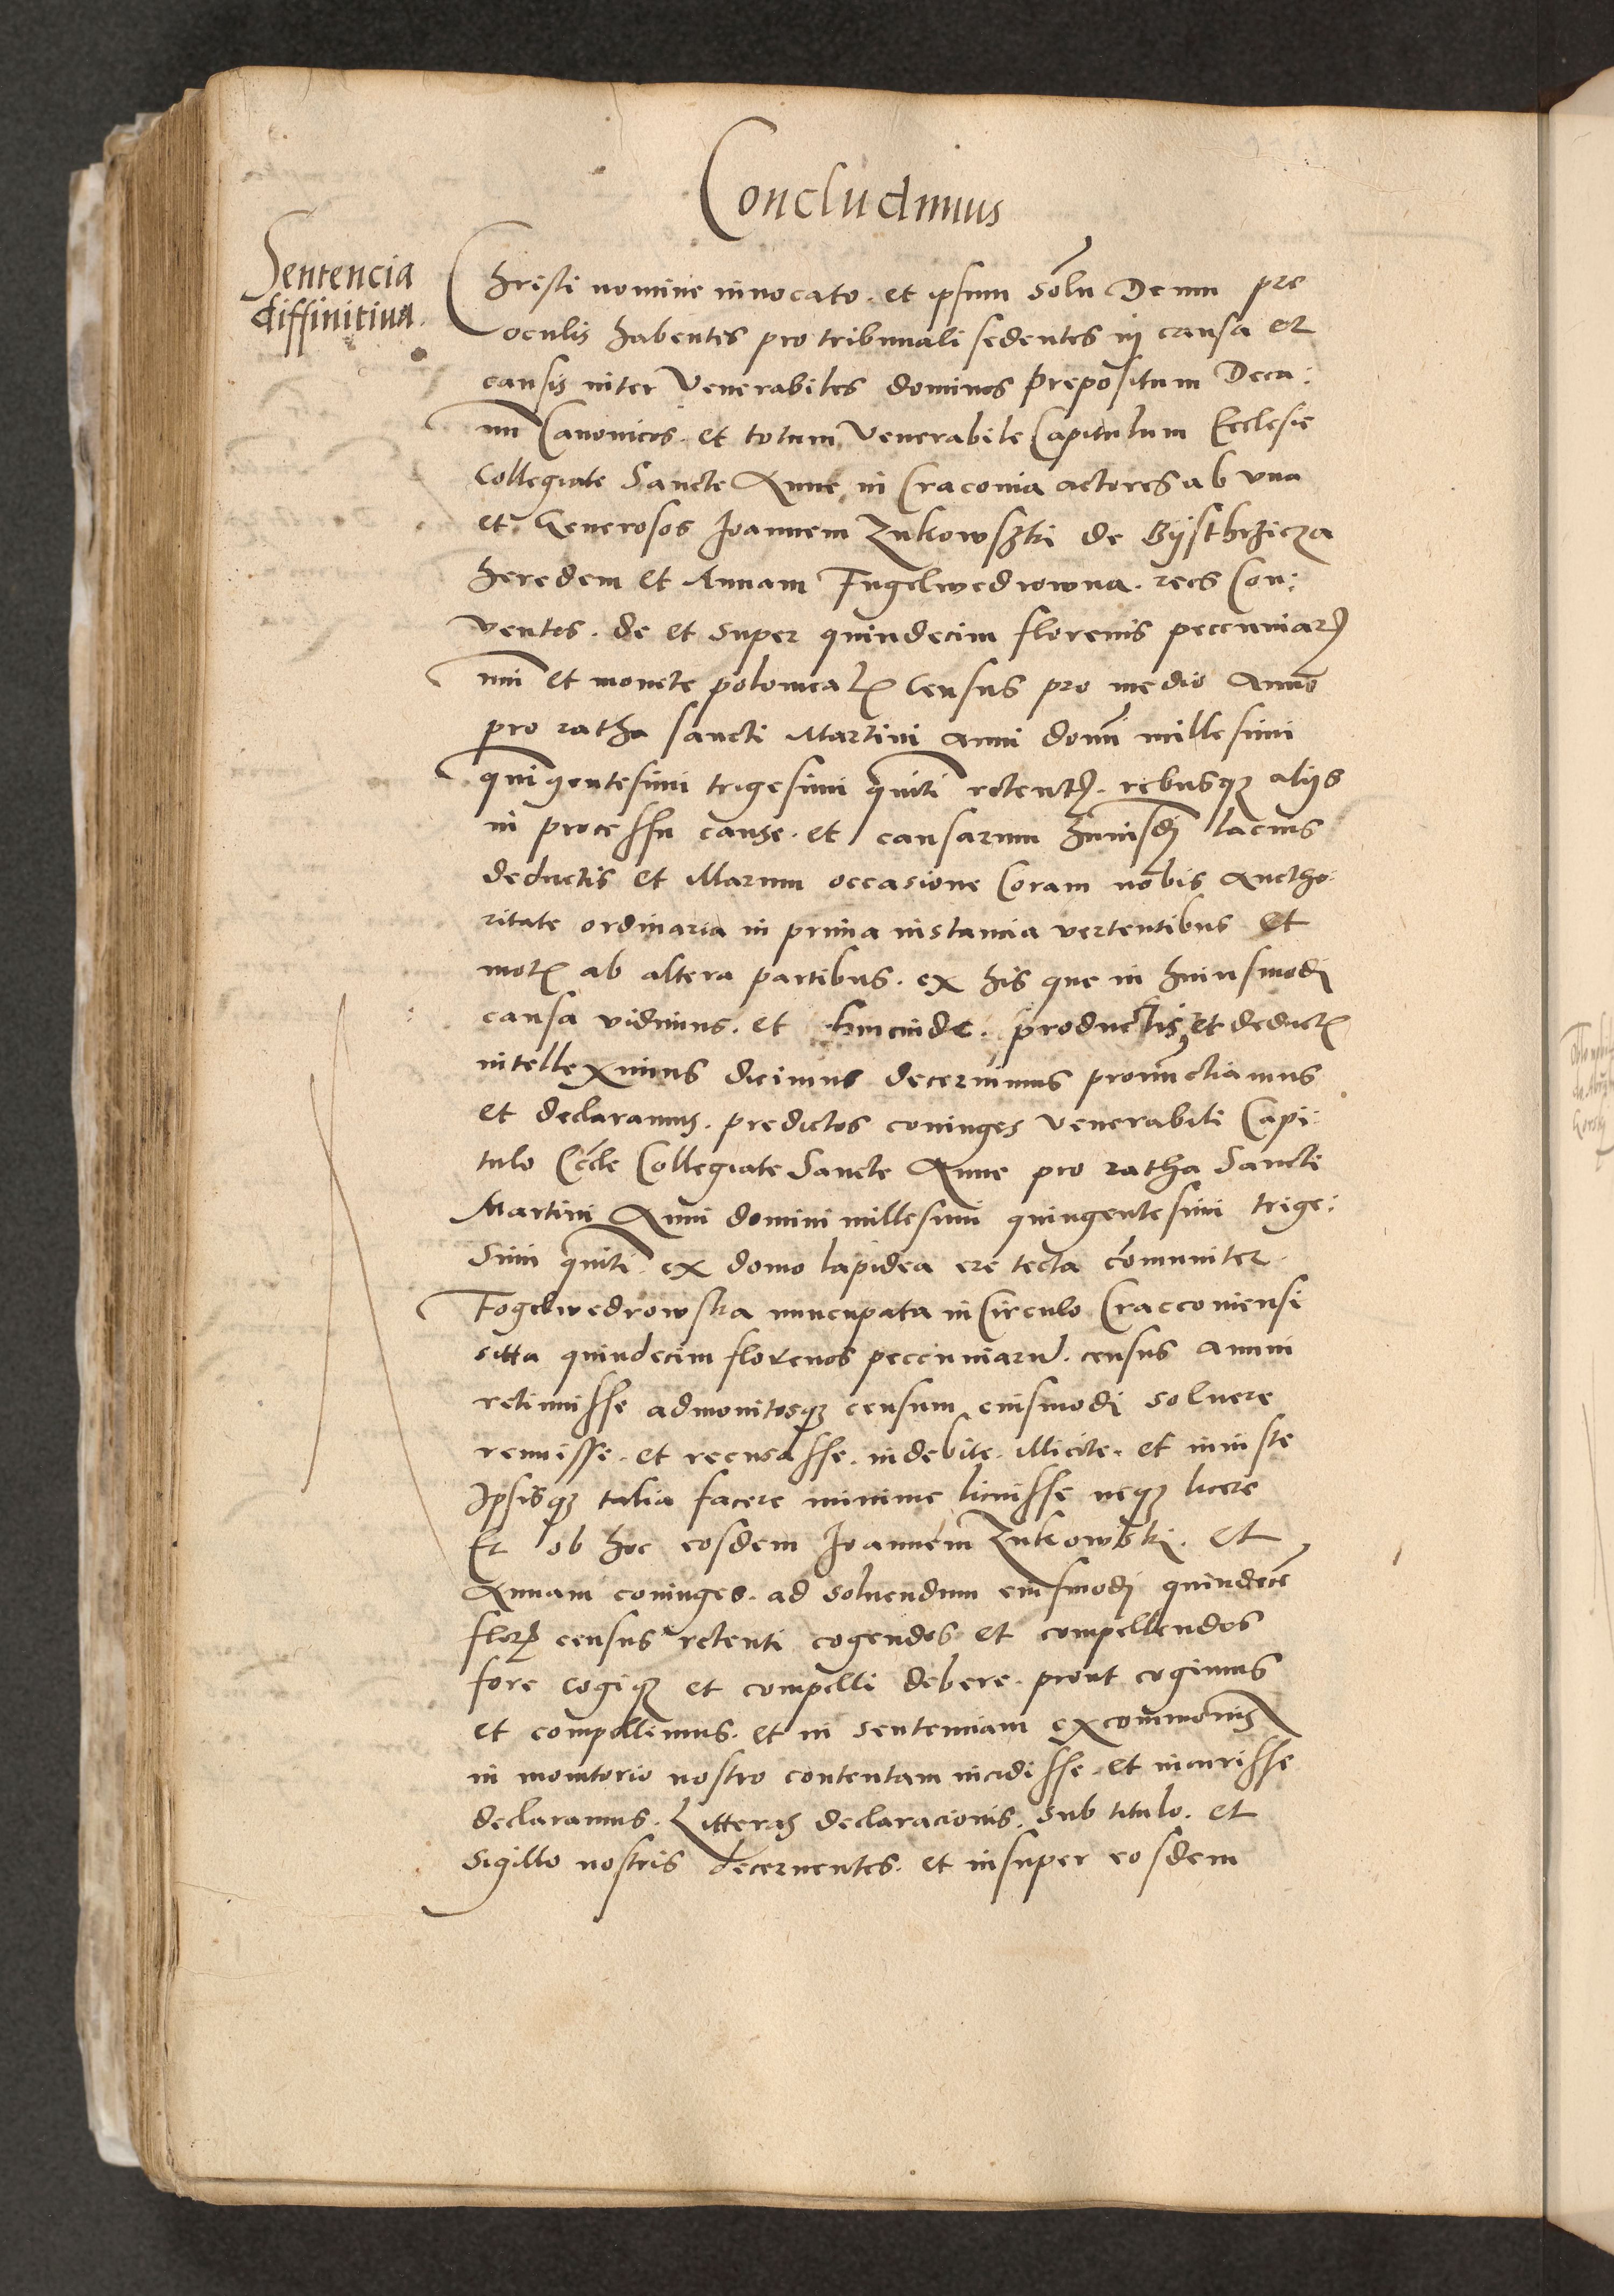 Concludimus
Sentencia
diffinitiua.
Christi nomine inuocato. et ipsum solu Deum pre
oculis habentes pro tribunali sedentes in causa et
causis inter Venerabiles dominos prepositum Deca:
nu Canonicos. et totum Venerabile Capitulum Ecclesie
Collegiate Sancte Anne in Craconia actores ab vna
et Generosos Joannem Zukowszki de Bijsthrzicza
heredem et Annam Fugelwedrowna. reos Con:
Ventos. de et super quindecim florenis peccuniar
nui et monete polonical Census pro medio anno
pro ratha sancti Martini anni domi millesimi
quingentesimi trigesimi quiti retent. rebusq aliis
in processu cause. et causarum huiusdi lacius
deductis et illarum occasione Coram nobis Auctho
ritate ordinaria in prima instancia vertentibus et
mot ab altera partibus. ex his que in huiusmodi
causa vidimus. et hincinde. productis et deduct
intelleximus dicimus decernimus pronunctiamus
et declaramus. predictos coniuges Venerabili Capi:
tulo Eccle Collegiate Sancte Anne pro ratha Sancti
Martini Anni domini millesimi quingentesimi trige:
simi quiti. ex domo lapidea ere tecta comuniter.
Fogelwedrowska nuncupata in Circulo Cracconiensi
sitta quindecim florenos peccuniaru. census annui
retinuisse admonitosq censum eiusmodi soluere
renuisse. et recusasse. indebite. illicite. et iniuste
Ipsisq talia facere minime licuisse neq licere
Et ob hoc eosdem Joannem Zukowski. et
Annam coniuges. ad soluendum eiusmodi quindece
flor census retenti cogendos et compellendos
fore cogiq et compelli debere. prout cogimus
et compellimus. et in sentenciam excommonis
in monitorio nostro contentam incidisse. et incurisse
declaramus. Litteras declaracionis. sub titulo. et
Sigillo nostris decernentes. et insuper eosdem